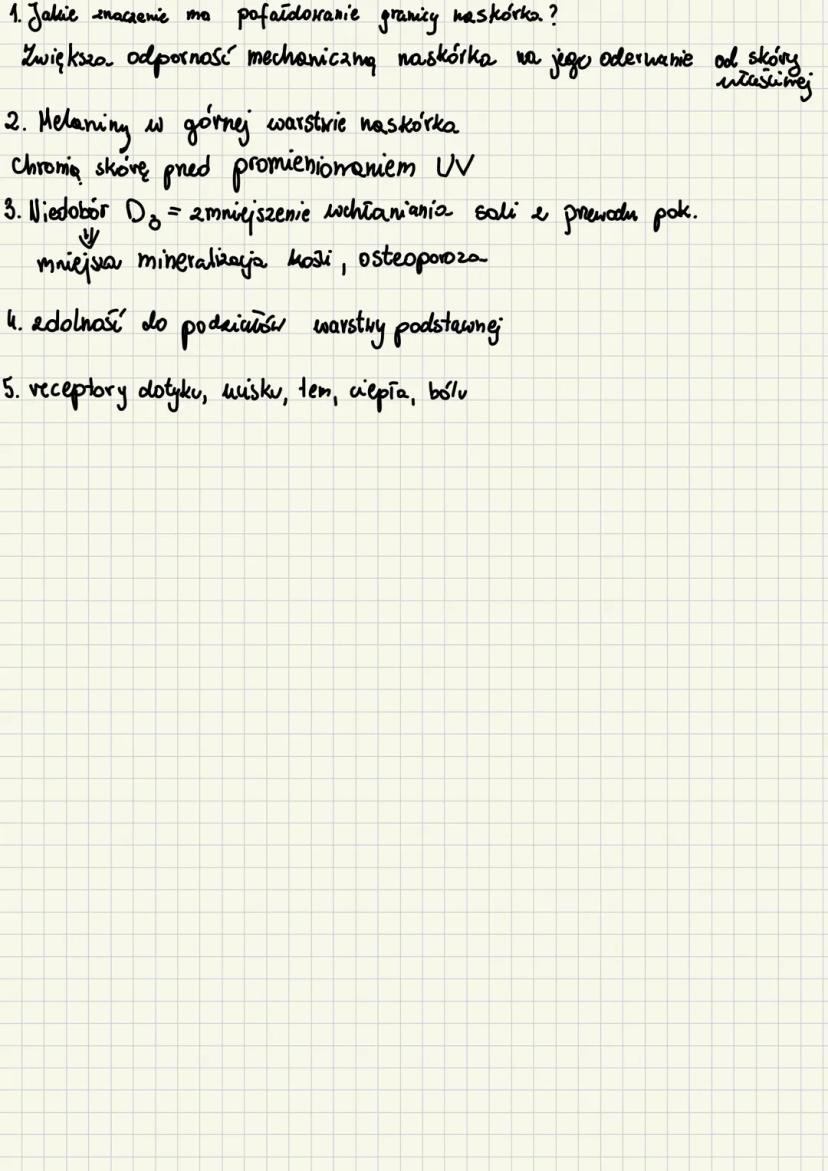 1. Jakie znaczenie ma pofałdowanie granicy naskórka?
Zwiększa odporność mechaniczną naskórka na jego oderwanie od skóry
właściwej
2. Melaniny w górnej warstwie naskórka
Chronią skórę przed promieniowaniem UV
3. Niedobór D3 = zmniejszenie wchłaniania soli z przewodu pok.
⇓
mniejsza mineralizacja kości, osteoporoza
4. zdolność do podziałów warstwy podstawnej
5. receptory dotyku, ucisku, tem, ciepła, bólu